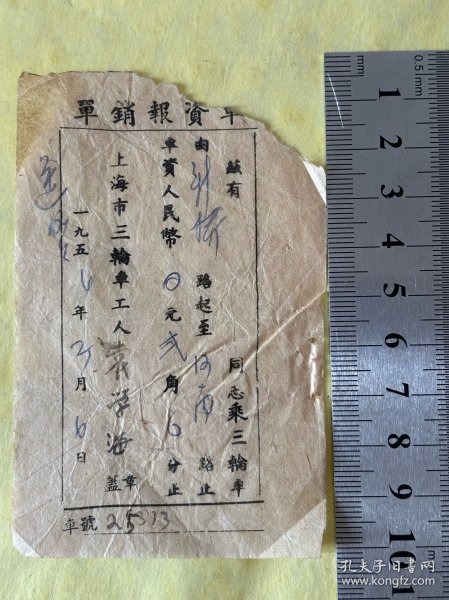 車資報銷單
茲有 同志乘三輪車
由 路起至河南 路止
車資人民幣 0元弐角 分止
上海市三輪車工人 袁学海 蓋章
一九五 年 月6日
車號 25373
0.5mm
1
2
3
4
5
6
7
8
9
10
1mm
孔夫子旧书网
www.kongfz.com